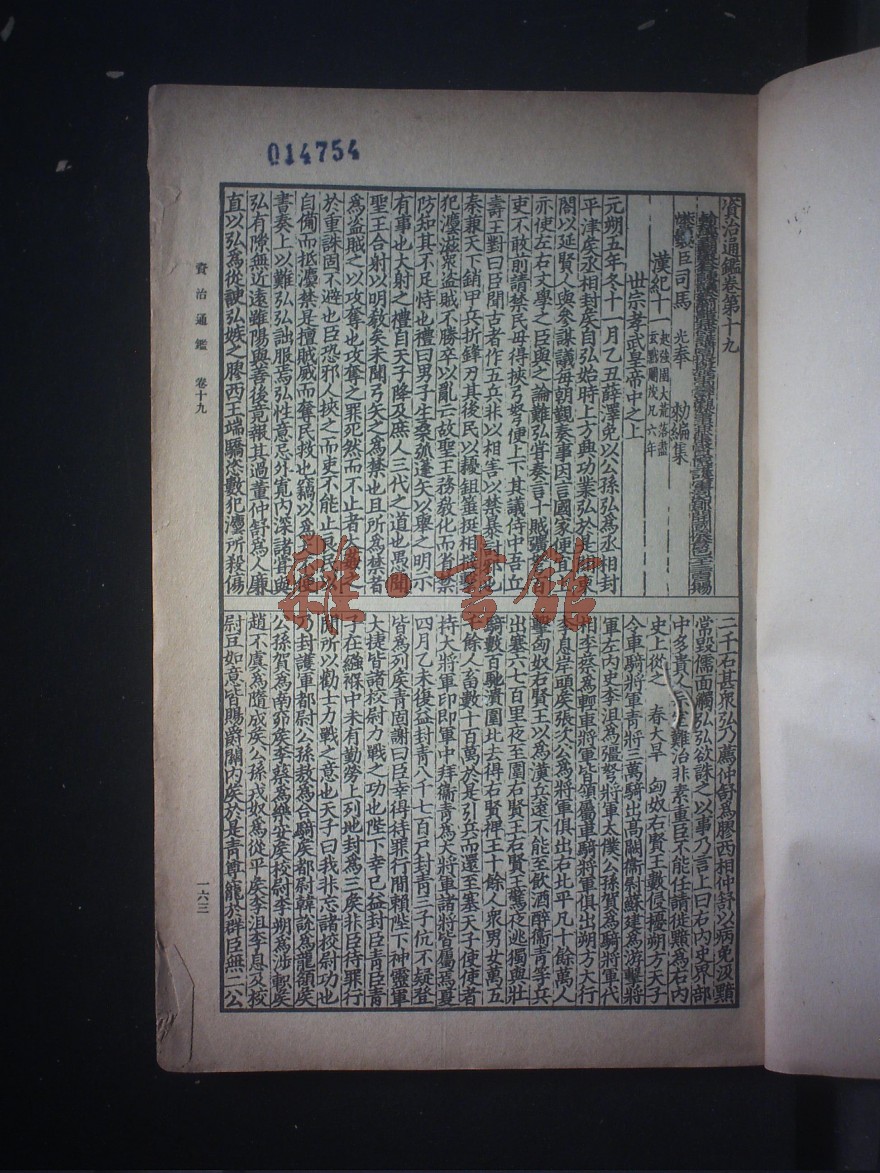 014754
資治通鑑卷第十九
臣司馬 光奉 勑編集
漢紀十一 起強圉大荒落盡玄黓閹茂凡六年
世宗孝武皇帝中之上
元朔五年冬十一月乙丑薛澤免以公孫弘為丞相封
平津矦丞相封矦自弘始時上方興功業弘於是開東
閤以延賢人與參謀議每朝覲奏事因言國家便宜上
亦使左右文學之臣與之論難弘甞奏言十賊彍弩百
吏不敢前請禁民毋得挾弓弩便上下其議侍中吾丘
壽王對曰臣聞古者作五兵非以相害以禁暴討邪也
秦兼天下銷甲兵折鋒刃其後民以耰鉏箠挺相撻擊
犯灋滋衆盜賊不勝卒以亂亡故聖王務敎化而省禁
防知其不足恃也禮曰男子生桑弧蓬矢以舉之明示
有事也大射之禮自天子降及庶人三代之道也愚聞
聖王合射以明敎矣未聞弓矢之為禁也且所為禁者
為盜賊之以攻奪也攻奪之罪死然而不止者大姦之
於重誅固不避也臣恐邪人挾之而吏不能止良民以
自備而抵灋禁是擅賊威而奪民救也竊以為大不便
書奏上以難弘弘詘服焉弘性意忌外寬內深諸甞與
弘有隙無近遠雖陽與善後竟報其過董仲舒為人廉
直以弘為從諛弘嫉之膠西王端驕恣數犯灋所殺傷
二千石甚衆弘乃薦仲舒為膠西相仲舒以病免汲黯
常毀儒面觸弘弘欲誅之以事乃言上曰右內史界部
中多貴人宗室難治非素重臣不能任請徙黯為右內
史上從之 春大旱 匈奴右賢王數侵擾朔方天子
令車騎將軍青將三萬騎出高闕衞尉蘇建為游擊將
軍左內史李沮為彊弩將軍太僕公孫賀為騎將軍代
相李蔡為輕車將軍皆領屬車騎將軍俱出朔方大行
李息岸頭矦張次公為將軍俱出右北平凡十餘萬人
擊匈奴右賢王以為漢兵遠不能至飲酒醉衞青等兵
出塞六七百里夜至圍右賢王右賢王驚夜逃獨與壯
騎數百馳潰圍北去得右賢裨王十餘人衆男女萬五
千餘人畜數十百萬於是引兵而還至塞天子使使者
持大將軍印即軍中拜衞青為大將軍諸將皆屬焉夏
四月乙未復益封青八千七百戶封青三子伉不疑登
皆為列矦青固謝曰臣幸得待罪行間賴陛下神靈軍
大捷皆諸校尉力戰之功也陛下幸已益封臣青臣青
子在繈褓中未有勤勞上列地封為三矦非臣待罪行
間所以勸士力戰之意也天子曰我非忘諸校尉功也
乃封護軍都尉公孫敖為合騎矦都尉韓說為龍頟矦
公孫賀為南窌矦李蔡為樂安矦校尉李朔為涉軹矦
趙不虞為隨成矦公孫戎奴為從平矦李沮李息及校
尉豆如意皆賜爵關內矦於是青尊寵於群臣無二公
資治通鑑 卷十九
一六三
雜·書館